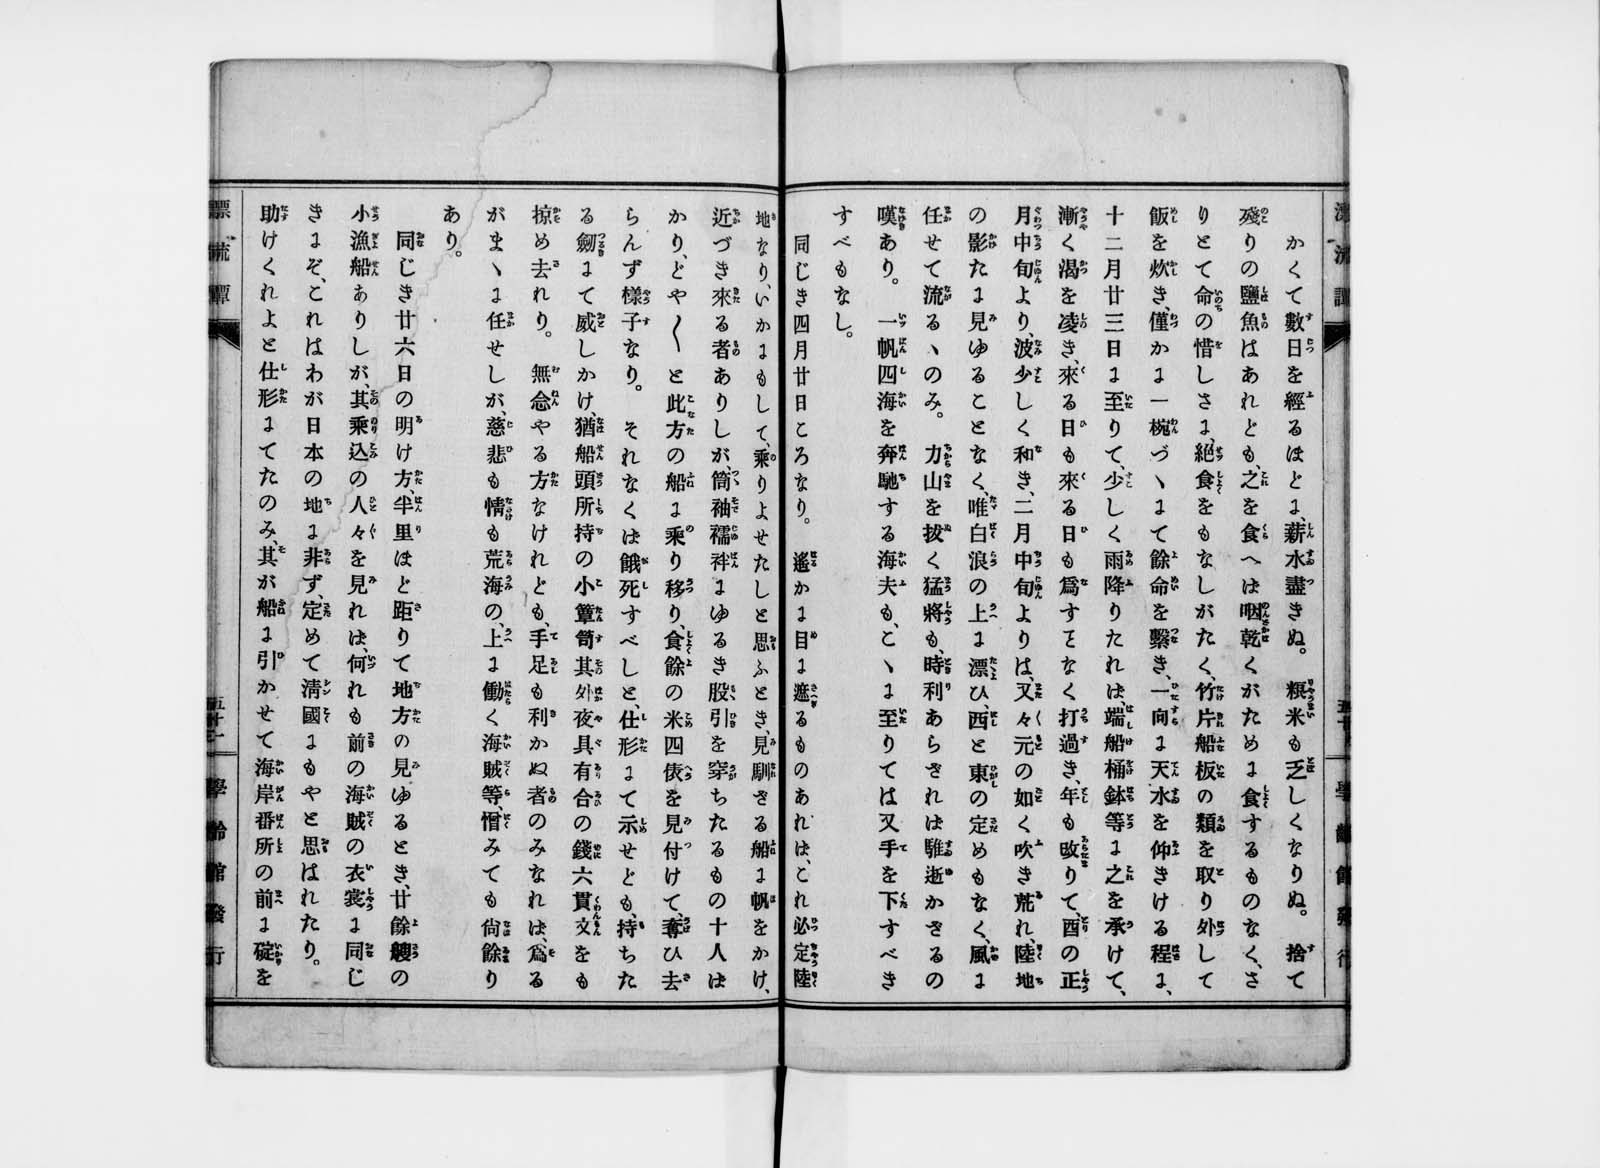 かくて數日を經るほどに、薪水盡きぬ。糧米も乏しくなりぬ。捨て
殘りの鹽魚はあれども、之を食へは咽乾くがために食するものなく、さ
りとて命の惜しさに、絶食をもなしがたく、竹片船板の類を取り外して
飯を炊き、僅かに一椀づヽにて餘命を繫き、一向に天水を仰きける程に、
十二月廿三日に至りて、少しく雨降りたれは、端船桶鉢等に之を承けて、
漸く渴を凌き、來る日も來る日も爲すヿなく打過き、年も改りて、酉の正
月中旬より、波少しく和き、二月中旬よりは、又々元の如く吹き荒れ、陸地
の影たに見ゆることなく、唯白浪の上に漂ひ、西と東の定めもなく、風に
任せて流るヽのみ。力山を拔く猛將も、時利あらされは騅逝かざるの
嘆あり。一帆四海を奔馳する海夫も、こヽに至りては又手を下すべき
すべもなし。
同じき四月廿日ころなり。遙かに目に遮るものあれは、これ必定陸
地なり、いかにもして、乘りよせたしと思ふとき、見馴ざる船に帆をかけ、
近づき來る者ありしが、筒袖襦袢にゆるき股引を穿ちたるもの十人は
かり、どや〱と此方の船に乘り移り、食餘の米四俵を見付けて、奪ひ去
らんず樣子なり。それなくは餓死すべしと、仕形にて示せども、持ちた
る劒にて威しかけ、猶船頭所持の小簞笥其外夜具有合の錢六貫文をも
掠め去れり。無念やる方なけれども、手足も利かぬ者のみなれは、爲る
がまヽに任せしが、慈悲も情も荒海の、上に働く海賊等、憎みても尙餘り
あり。
同じき廿六日の明け方、半里ほど距りて地方の見ゆるとき、廿餘艘の
小漁船ありしが、其乘込の人々を見れは、何れも前の海賊の衣裳に同じ
きにぞ、これはわが日本の地に非ず、定めて淸國にもやと思はれたり。
助けくれよと仕形にてたのみ、其が船に引かせて海岸番所の前に碇を
漂流譚
五十一
學齡館發行